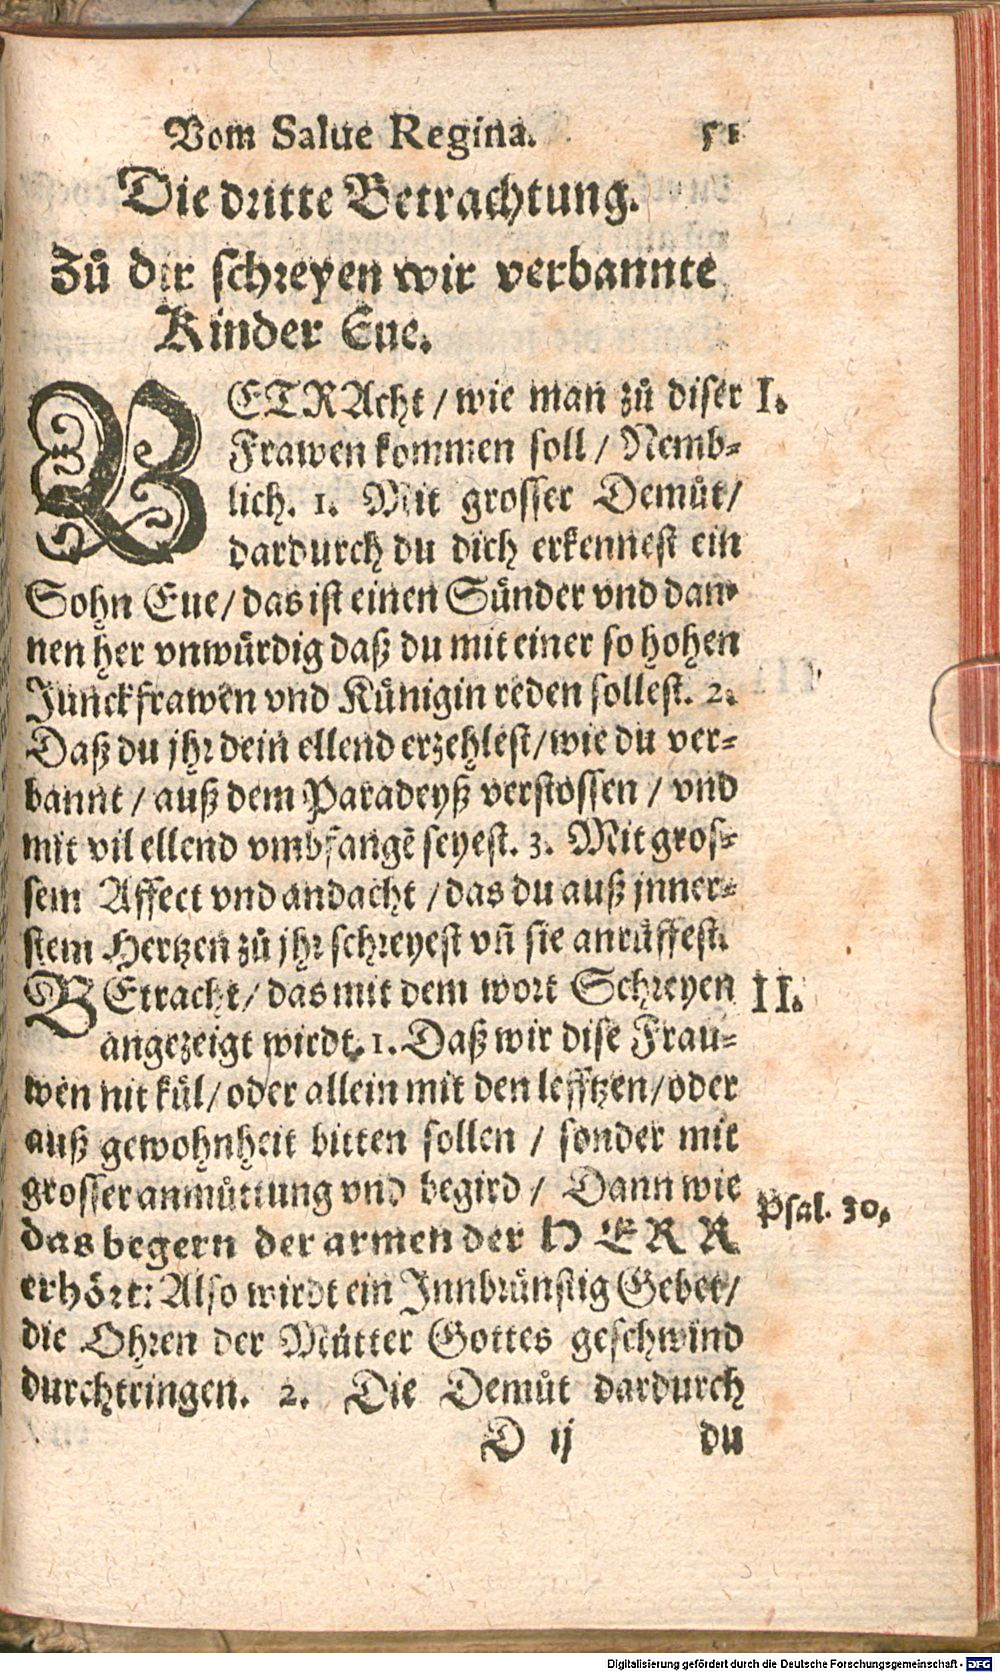 Vom Salue Regina. 51
Die dritte Betrachtung.
Zů dir schreyen wir verbannte
Kinder Eue.
BETRAcht / wie man zů diser I.
Frawen kommen soll / Nemb-
lich. 1. Mit grosser Demůt /
dardurch du dich erkennest ein
Sohn Eue / das ist einen Sünder vnd dan-
nen her vnwürdig daß du mit einer so hohen
Junckfrawen vnd Künigin reden sollest. 2.
Daß du jhr dein ellend erzehlest / wie du ver-
bannt / auß dem Paradeyß verstossen / vnd
mit vil ellend vmbfangẽ seyest. 3. Mit gros-
sem Affect vnd andacht / das du auß jnner-
stem Hertzen zů jhr schreyest vñ sie anrůffest.
BEtracht / das mit dem wort Schreyen II.
angezeigt wirdt. 1. Daß wir dise Frau-
wen nit kül / oder allein mit den lefftzen / oder
auß gewohnheit bitten sollen / sonder mit
grosser anmůttung vnd begird / Dann wie
das begern der armen der HERR Psal. 30.
erhört: Also wirdt ein Innbrünstig Gebet /
die Ohren der Můtter Gottes geschwind
durchtringen. 2. Die Demůt dardurch
D ij du
Digitalisierung gefördert durch die Deutsche Forschungsgemeinschaft - DFG